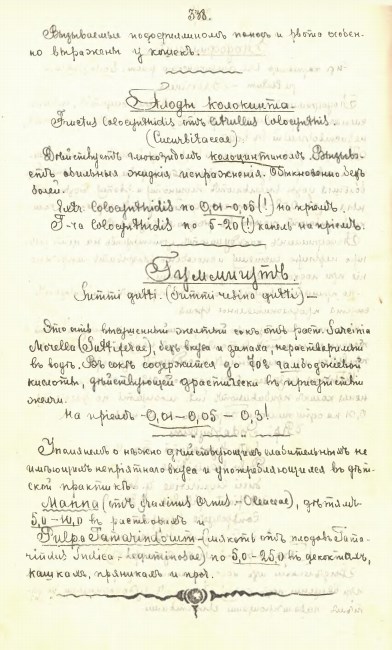 338.
Вызываемые подофиллиномъ поносъ и рвота особен-
но выражены у кошекъ.
Плоды колоквинта.
Fructus Colocynthidis отъ Citrullus Colocynthis
(Cucurbitaceae)
Дѣйствуетъ глюкозидомъ колоцинтиномъ. Вызыва-
етъ обильныя жидкія испражненія. Обыкновенно безъ
болей.
Extr. Colocynthidis по 0,01-0,05 (!) на пріемъ.
T-ra Colocynthidis по 5-20 (!) капель на пріемъ.
Гуммигутъ.
Gummi gutti. (Gummi resina gutti) —
Это есть сгущенный желтый сокъ отъ раст. Garcinia
Morella (Guttiferae), безъ вкуса и запаха, нерастворимый
въ водѣ. Въ сокѣ содержится до 70% гамбоджіевой
кислоты, дѣйствующей драстически въ присутствіи
желчи.
На пріемъ - 0,01 - 0,05 - 0,3!
Упомянемъ о нѣжно дѣйствующихъ слабительныхъ не
имѣющихъ непріятнаго вкуса и употребляющихся въ дѣт-
ской практикѣ.
Манна (отъ Fraxinus Ornus - Oleaceae), дѣтямъ
5,0 - 10,0 въ растворахъ и
Pulpa Tamarindorum - (мякоть отъ плодовъ Tama-
rindus Indica - Leguminosae) по 5,0 - 25,0 въ декоктахъ,
кашкахъ, пряникахъ и проч.